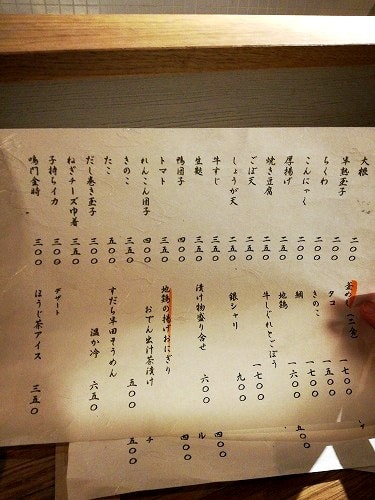 大根 二〇〇
半熟玉子 二〇〇
ちくわ 二〇〇
こんにゃく 二〇〇
厚揚げ 二〇〇
焼き豆腐 二五〇
ごぼ天 二五〇
しょうが天 二五〇
牛すじ 三五〇
生麩 三五〇
鴨団子
トマト
れんこん団子 四〇〇
きのこ
たこ 五〇〇
だし巻き玉子 三〇〇
ねぎチーズ巾着 三五〇
子持ちイカ 三〇〇
鳴門金時 三〇〇
釜めし(二合)
タコ 一七〇〇
きのこ 一五〇〇
鯛 一七〇〇
地鶏 一六〇〇
牛しぐれとごぼう 一七〇〇
銀シャリ 九〇〇
漬け物盛り合せ 六〇〇
地鶏の揚げおにぎり
おでん出汁茶漬け 五〇〇
すだち半田そうめん
温か冷 六五〇
デザート
ほうじ茶アイス 三五〇
五〇〇
ル 四〇〇
四〇〇
チ 五〇〇